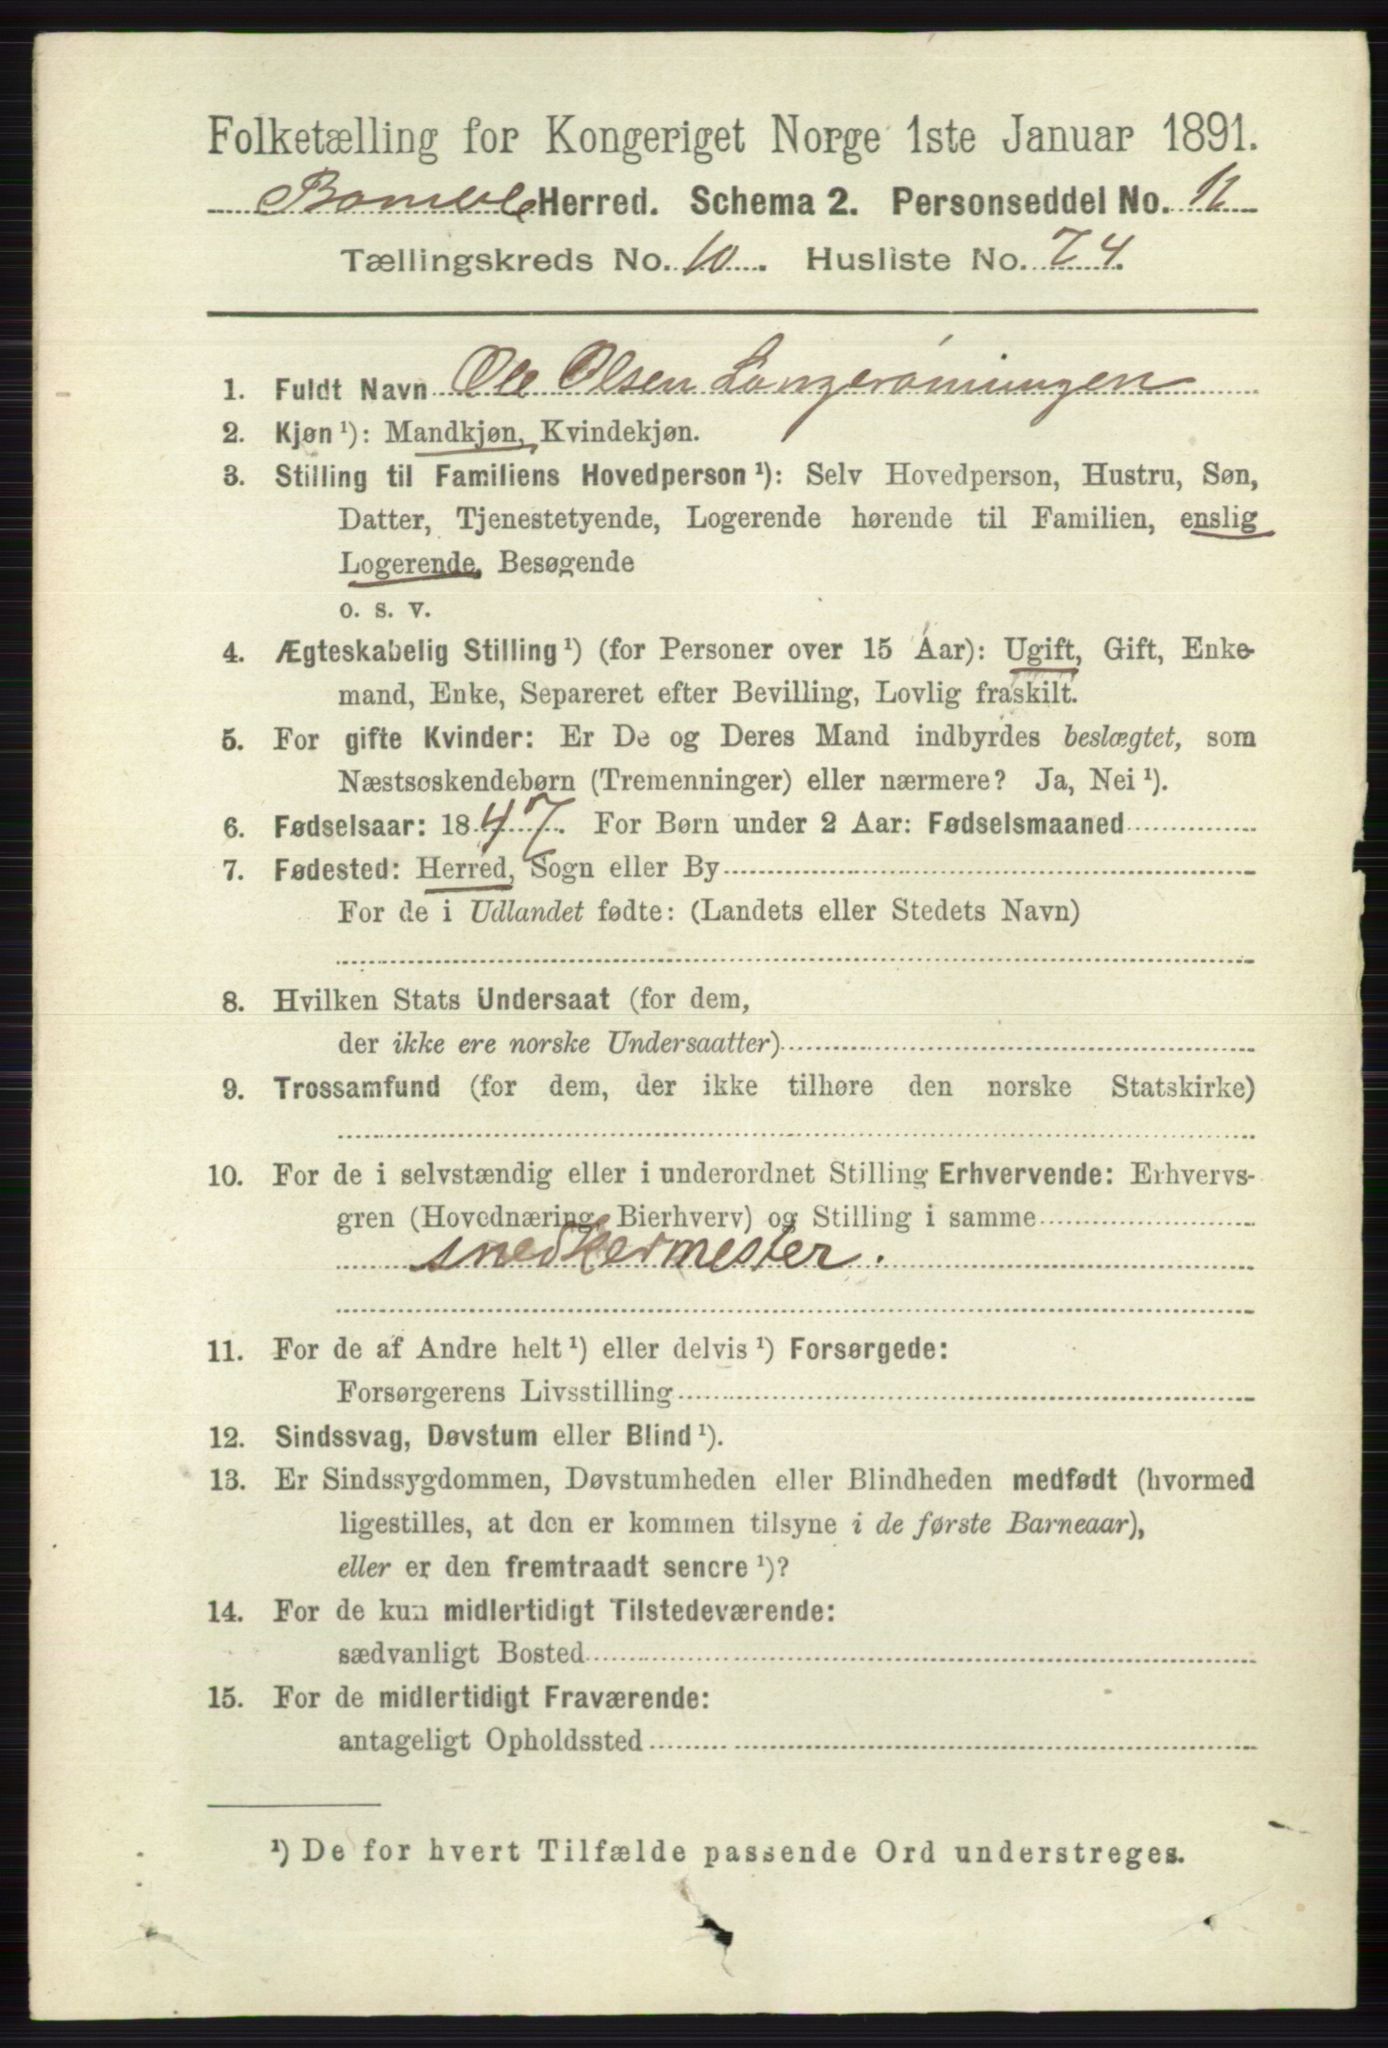 Folketælling for Kongeriget Norge 1ste Januar 1891.
Bamble Herred. Schema 2. Personseddel No. 12
Tællingskreds No. 10. Husliste No. 74.
1. Fuldt Navn Ole Olsen Langrønningen
2. Kjøn ¹): Mandkjøn, Kvindekjøn.
3. Stilling til Familiens Hovedperson ¹): Selv Hovedperson, Hustru, Søn,
Datter, Tjenestetyende, Logerende hørende til Familien, enslig
Logerende, Besøgende
o. s. v.
4. Ægteskabelig Stilling ¹) (for Personer over 15 Aar): Ugift, Gift, Enke-
mand, Enke, Separeret efter Bevilling, Lovlig fraskilt.
5. For gifte Kvinder: Er De og Deres Mand indbyrdes beslægtet, som
Næstsøskendebørn (Tremenninger) eller nærmere? Ja, Nei ¹).
6. Fødselsaar: 1847. For Børn under 2 Aar: Fødselsmaaned
7. Fødested: Herred, Sogn eller By
For de i Udlandet fødte: (Landets eller Stedets Navn)
8. Hvilken Stats Undersaat (for dem,
der ikke ere norske Undersaatter)
9. Trossamfund (for dem, der ikke tilhøre den norske Statskirke)
10. For de i selvstændig eller i underordnet Stilling Erhvervende: Erhvervs-
gren (Hovednæring, Bierhverv) og Stilling i samme
snedkermester.
11. For de af Andre helt ¹) eller delvis ¹) Forsørgede:
Forsørgerens Livsstilling
12. Sindssvag, Døvstum eller Blind ¹).
13. Er Sindssygdommen, Døvstumheden eller Blindheden medfødt (hvormed
ligestilles, at den er kommen tilsyne i de første Barneaar),
eller er den fremtraadt senere ¹)?
14. For de kun midlertidigt Tilstedeværende:
sædvanligt Bosted
15. For de midlertidigt Fraværende:
antageligt Opholdssted
¹) De for hvert Tilfælde passende Ord understreges.